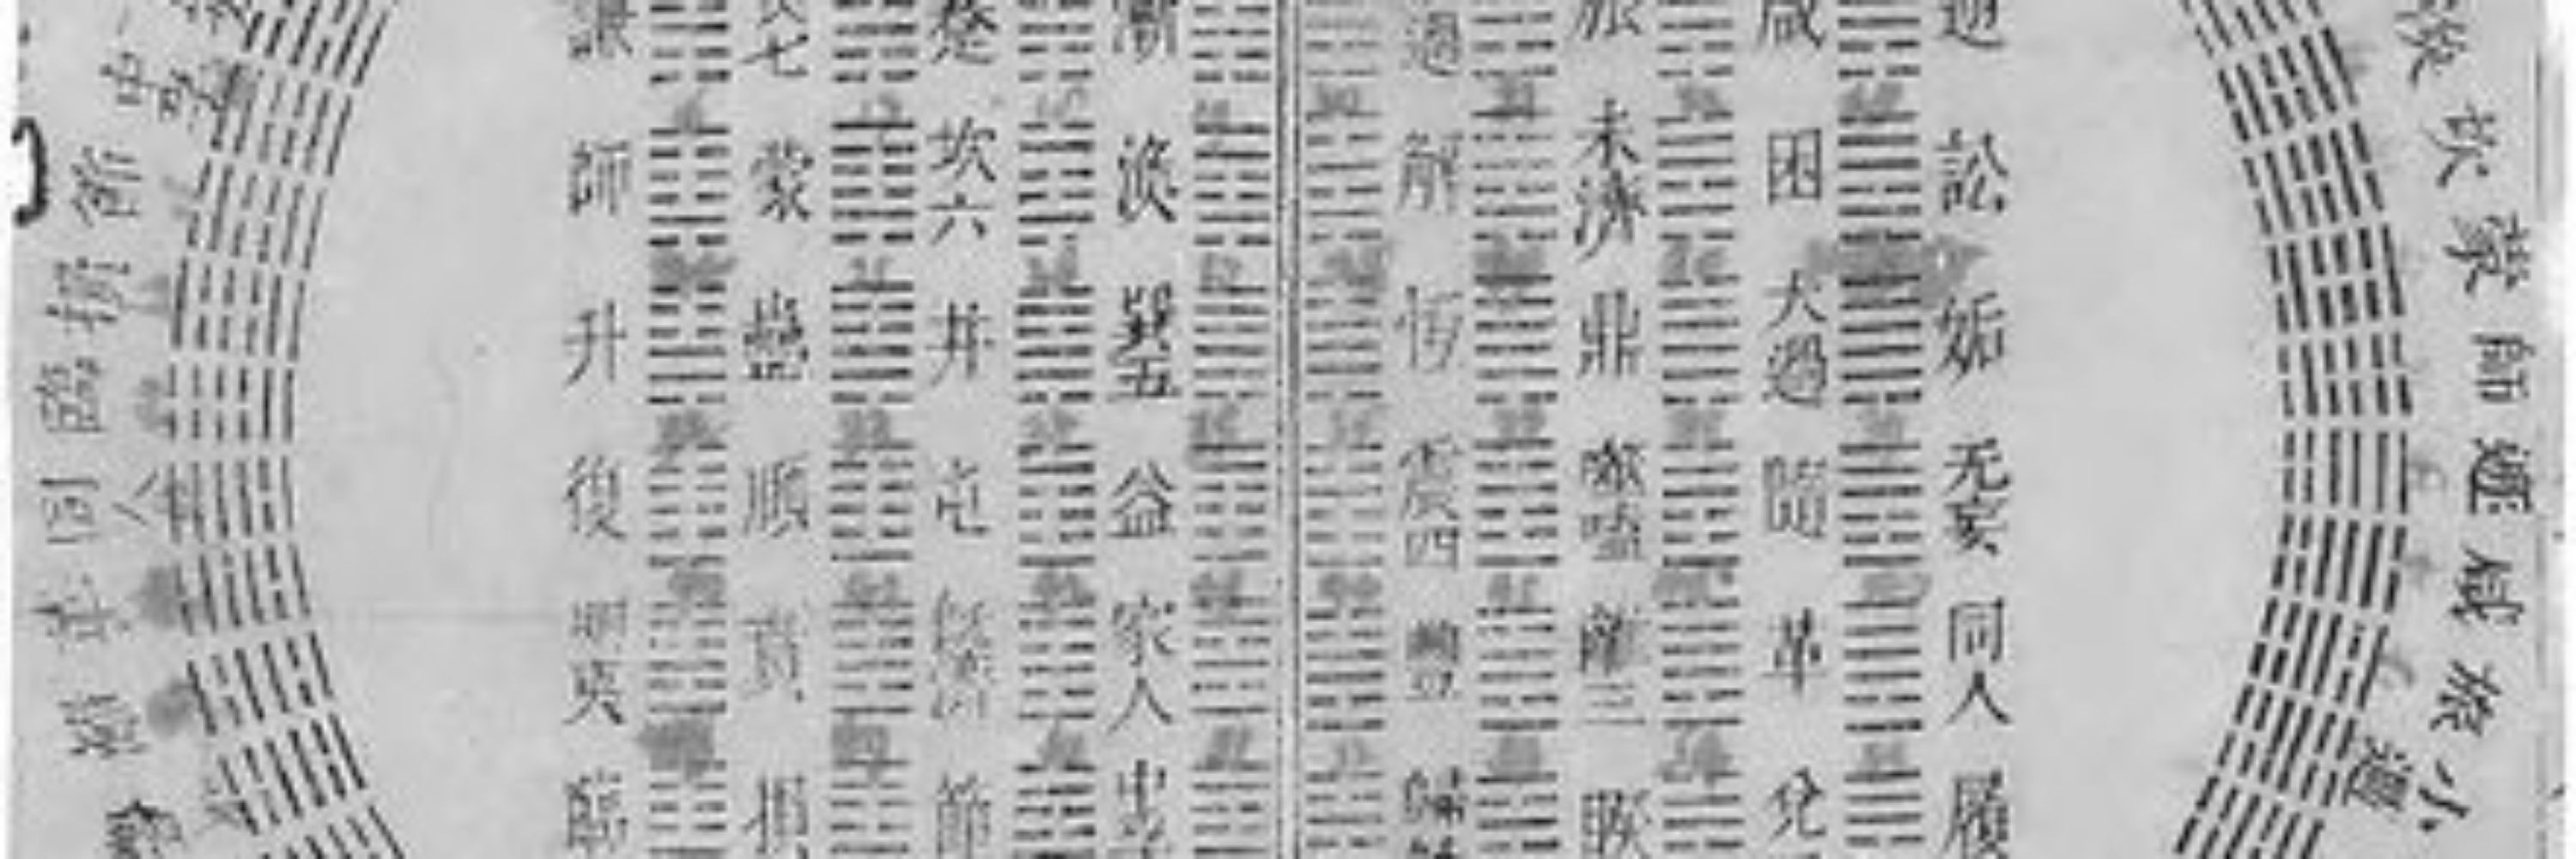 渙
坎
蒙
師
遯
咸
旅
小過
遯 訟 姤 无妄 同人 履
咸 困 大過 隨 革 兌
旅 未濟 鼎 噬嗑 離三 睽
過 解 恆 震四 豐 歸
漸 渙 巽五 益 家人 中
蹇 坎六 井 屯 既濟 節
七 蒙 蠱 頤 賁 損
謙 師 升 復 明夷 臨
中孚
節
損
臨
同人
革
離